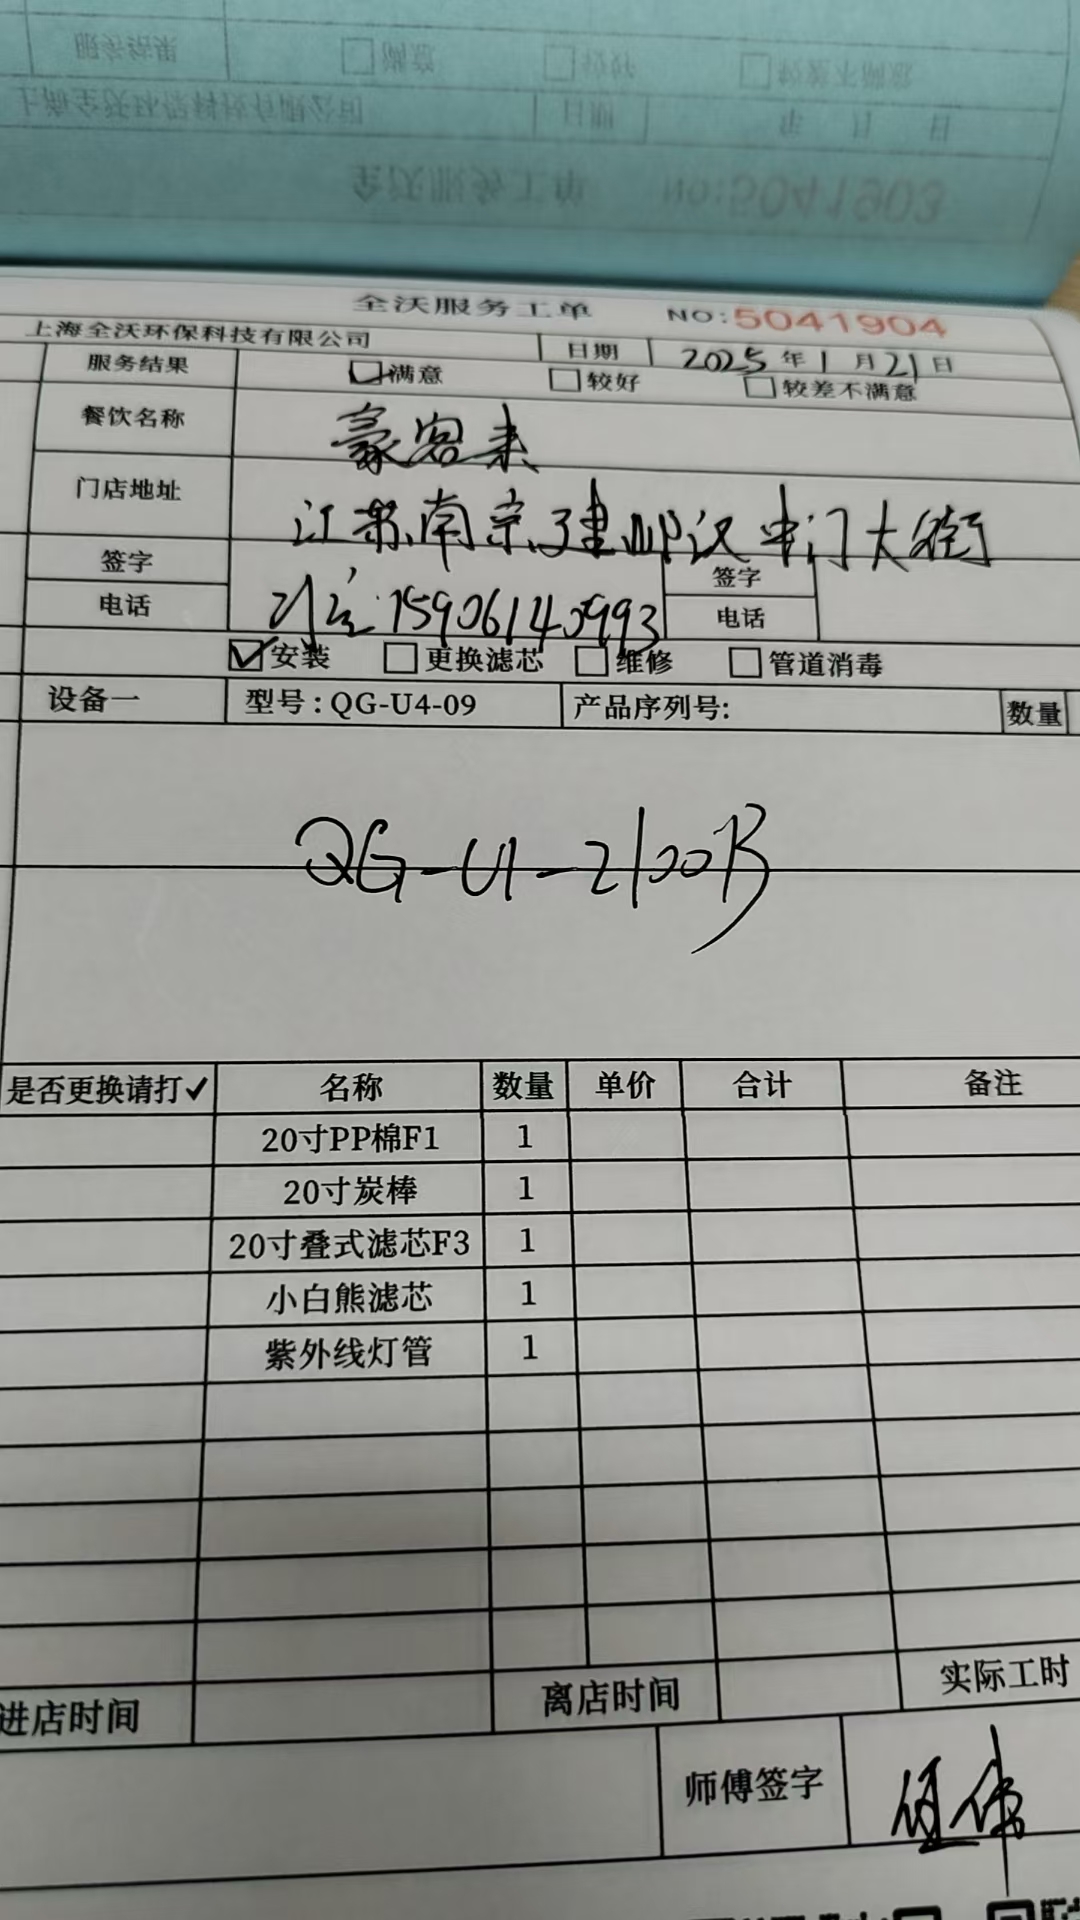 全沃服务工单 NO:5041904
上海全沃环保科技有限公司 日期 2025年1月21日
服务结果 满意 较好 较差不满意
餐饮名称 豪客来
门店地址 江苏南京建邺汉中门大街
签字 签字
电话 15906140993 电话
安装 更换滤芯 维修 管道消毒
设备一 型号:QG-U4-09 产品序列号: 数量
QG-U1-2100B
是否更换请打✓ 名称 数量 单价 合计 备注
20寸PP棉F1 1
20寸炭棒 1
20寸叠式滤芯F3 1
小白熊滤芯 1
紫外线灯管 1
进店时间 离店时间 实际工时
师傅签字